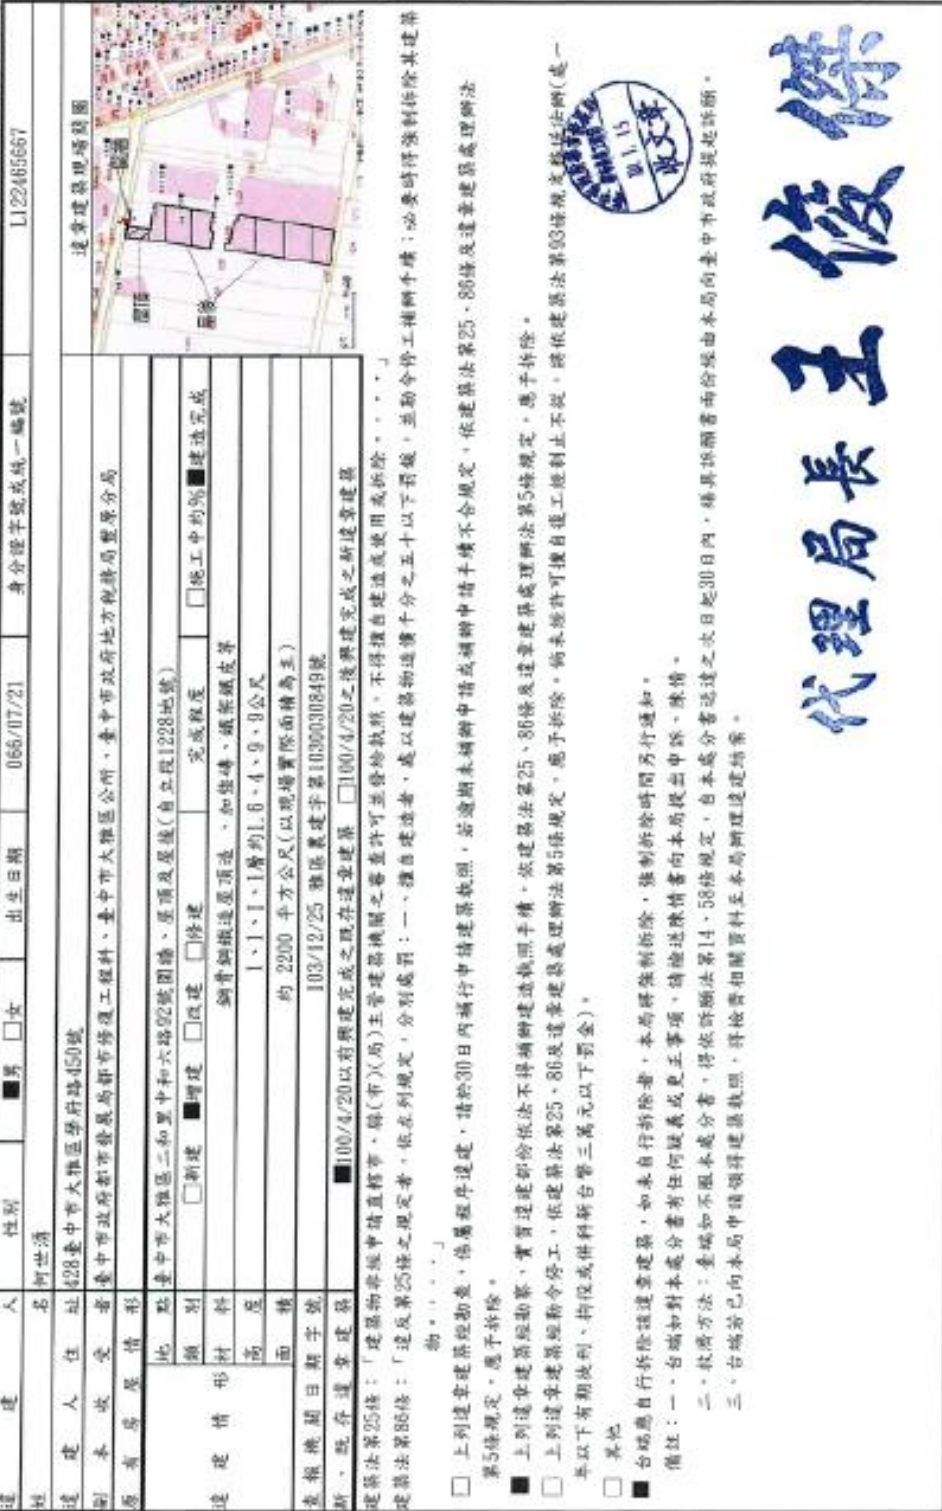 違建人
性別 ■男 □女
出生日期 066/07/21
身分證字號或統一編號 L122465667
姓名 何世清
違建人住址 428臺中市大雅區學府路450號
副本收受者 臺中市政府都市發展局都市修復工程科、臺中市大雅區公所、臺中市政府地方稅務局豐原分局
違章建築現場簡圖
原有房屋情形
違建情形
地點 臺中市大雅區二和里中和六路92號圍牆、屋頂及屋後(自立段1228地號)
類別 □新建 ■增建 □改建 □修建
完成程度 □施工中約% ■建造完成
材料 鋼骨鋼鐵造屋頂造、加強磚、鐵架鐵皮等
高度 1、1、1層約1.6、4、9、9公尺
面積 約 2200 平方公尺(以現場實際面積為主)
查報機關日期字號 103/12/25 雅區農建字第1030030849號
新、既存違章建築 ■100/4/20以前興建完成之既存違章建築 □100/4/20之後興建完成之新違章建築
圍牆
屋頂
屋後
建築法第25條：「建築物非經申請直轄市、縣(市)(局)主管建築機關之審查許可並發給執照，不得擅自建造或使用或拆除‧‧‧‧」
建築法第86條：「違反第25條之規定者，依左列規定，分別處罰：一、擅自建造者，處以建築物造價千分之五十以下罰鍰，並勒令停工補辦手續；必要時得強制拆除其建築
物‧‧‧‧」
□ 上列違章建築經勘查，係屬程序違建，請於30日內補行申請建築執照，若逾期未補辦申請或補辦申請手續不合規定，依建築法第25、86條及違章建築處理辦法
第5條規定，應予拆除。
■ 上列違章建築經勘察，實質違建部份依法不得補辦建造執照手續，依建築法第25、86條及違章建築處理辦法第5條規定，應予拆除。
□ 上列違章建築經勒令停工，依建築法第25、86及違章建築處理辦法第5條規定，應予拆除。倘未經許可擅自復工經制止不從，將依建築法第93條規定移送法辦(處一
年以下有期徒刑、拘役或併科新台幣三萬元以下罰金)。
□ 其他
■ 台端應自行拆除該違章建築，如未自行拆除者，本局將強制拆除，強制拆除時間另行通知。
備註：一、台端如對本處分書有任何疑義或更正事項，請檢送陳情書向本局提出申訴、陳情。
二、救濟方法：臺端如不服本處分書，得依訴願法第14、58條規定，自本處分書送達之次日起30日內，繕具訴願書兩份經由本局向臺中市政府提起訴願。
三、台端若已向本局申請領得建築執照，得檢齊相關資料至本局辦理違建結案。
代理局長 王俊傑